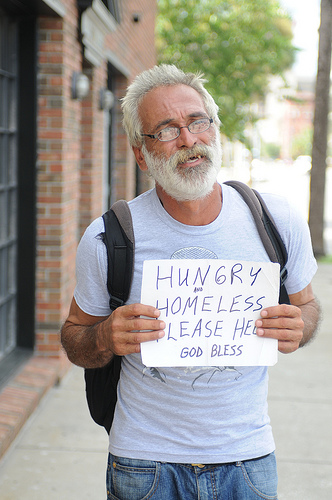 HUNGRY
AND
HOMELESS
PLEASE HEL
GOD BLESS